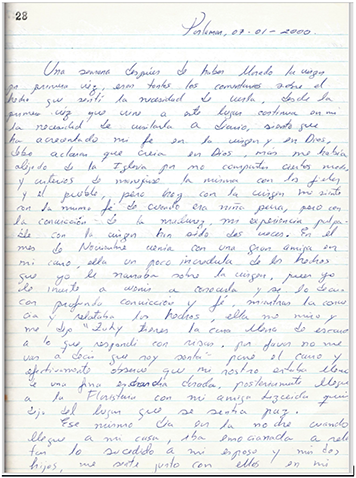 28
Porlamar, 09-01-2000.
Una semana después de haber llorado la virgen
por primera vez, eran tantos los comentarios sobre el
hecho que sentí la necesidad de verla, desde la
primera vez que vine a este lugar continua en mi
la necesidad de visitarla a diario, siento que
ha acrecentado mi fe en la virgen y en Dios,
debo aclarar que creía en Dios, más me había
alejado de la Iglesia por no compartir ciertas
y criterios de manejar la misma con los fieles
y el pueblo, pero hoy con la virgen me siento
con la misma fe de cuando era niña pura, pero con
la convicción de la madurez, mi experiencia palpa-
ble con la virgen han sido dos veces. En el
mes de Noviembre venía con una gran amiga en
mi carro, ella un poco incrédula de los hechos
que yo le narraba sobre la virgen, pues yo
le invité a venir a conocerla y se lo decía
con profunda convicción y fé, mientras la
cía y relataba los hechos, ella me miró y
me dijo " tienes la cara llena de escarcha
a lo que respondí con risas, por favor no me
vas a decir que soy santa" paré el carro y
efectivamente observé que mi rostro estaba lleno
de una fina escarcha dorada, posteriormente llegué
a la Floristería con mi amiga quien
dijo del lugar que se sentía paz.
Ese mismo día en la noche cuando
llegué a mi casa, iba emocionada a rela
tar lo sucedido a mi esposo y mis dos
hijos, me senté junto con ellos en mi